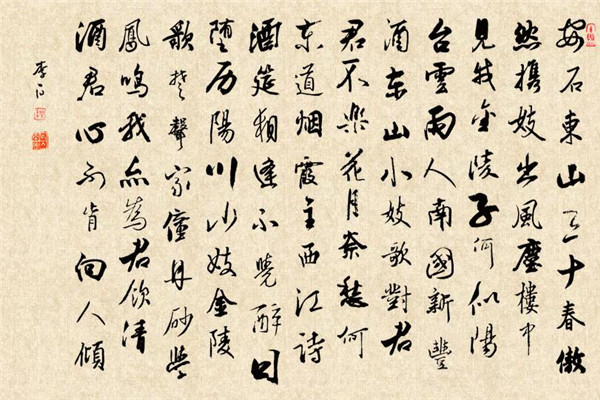 安石東山三十春傲
然携妓出風塵樓中
見我金陵子何似陽
台雲雨人南國新豐
酒東山小妓歌對君
君不樂花月奈愁何
東道烟霞主西江詩
酒筵相逢不覺醉日
墮历陽川小妓金陵
歌楚聲家僮丹砂學
鳳鳴我亦為君飲清
酒君心不肯向人傾